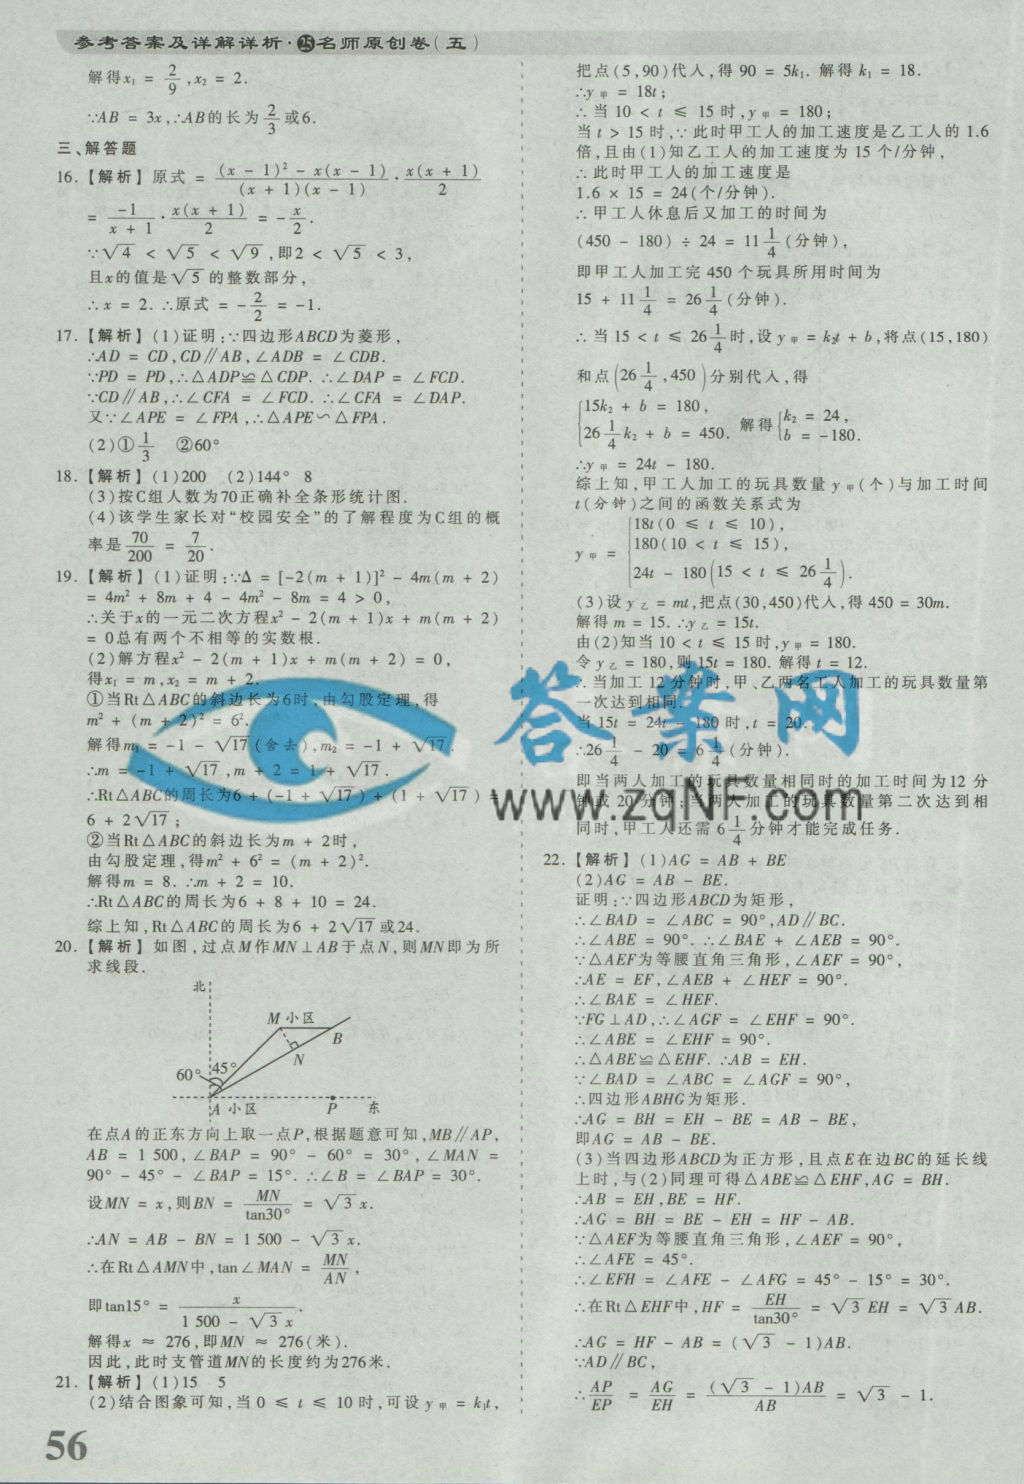 参考答案及详解详析·㉕名师原创卷(五)
解得x₁ = 2/9 ,x₂ = 2.
∵AB = 3x,∴AB的长为 2/3 或6.
三、解答题
16.【解析】原式 = ((x - 1)² - x(x - 1))/((x + 1)(x - 1)) · (x(x + 1))/2
= (-1)/(x + 1) · (x(x + 1))/2 = - x/2 .
∵√4 < √5 < √9 ,即2 < √5 < 3,
且x的值是√5 的整数部分,
∴x = 2. ∴原式 = - 2/2 = -1.
17.【解析】(1)证明:∵四边形ABCD为菱形,
∴AD = CD,CD∥AB,∠ADB = ∠CDB.
∵PD = PD,∴△ADP≌△CDP. ∴∠DAP = ∠FCD.
∵CD∥AB,∴∠CFA = ∠FCD. ∴∠CFA = ∠DAP.
又∵∠APE = ∠FPA ,∴△APE∽△FPA.
(2)① 1/3 ②60°
18.【解析】(1)200 (2)144° 8
(3)按C组人数为70正确补全条形统计图.
(4)该学生家长对“校园安全”的了解程度为C组的概
率是 70/200 = 7/20 .
19.【解析】(1)证明:∵Δ = [-2(m + 1)]² - 4m(m + 2)
= 4m² + 8m + 4 - 4m² - 8m = 4 > 0,
∴关于x的一元二次方程x² - 2(m + 1)x + m(m + 2)
= 0总有两个不相等的实数根.
(2)解方程x² - 2(m + 1)x + m(m + 2) = 0,
得x₁ = m,x₂ = m + 2.
①当Rt△ABC的斜边长为6时,由勾股定理,得
m² + (m + 2)² = 6².
解得m₁ = -1 - √17 (舍去),m₂ = -1 + √17 .
∴m = -1 + √17 ,m + 2 = 1 + √17 .
∴Rt△ABC的周长为6 + (-1 + √17 ) + (1 + √17 ) =
6 + 2√17 ;
②当Rt△ABC的斜边长为m + 2时,
由勾股定理,得m² + 6² = (m + 2)².
解得m = 8. ∴m + 2 = 10.
∴Rt△ABC的周长为6 + 8 + 10 = 24.
综上知,Rt△ABC的周长为6 + 2√17 或24.
20.【解析】如图,过点M作MN⊥AB于点N,则MN即为所
求线段.
北
M 小区
B
N
60° 45°
A 小区 P 东
在点A的正东方向上取一点P,根据题意可知,MB∥AP,
AB = 1 500,∠BAP = 90° - 60° = 30°,∠MAN =
90° - 45° - ∠BAP = 15°. ∴∠B = ∠BAP = 30°.
设MN = x,则BN = MN/tan30° = √3 x.
∴AN = AB - BN = 1 500 - √3 x.
∴在Rt△AMN中,tan∠MAN = MN/AN ,
即tan15° = x/(1 500 - √3 x) .
解得x ≈ 276,即MN ≈ 276(米).
因此,此时支管道MN的长度约为276米.
21.【解析】(1)15 5
(2)结合图象可知,当0 ≤ t ≤ 10时,可设y甲 = k₁t,
56
把点(5,90)代入,得90 = 5k₁. 解得k₁ = 18.
∴y甲 = 18t;
∴当10 < t ≤ 15时,y甲 = 180;
当t > 15时,∵此时甲工人的加工速度是乙工人的1.6
倍,且由(1)知乙工人的加工速度为15个/分钟,
∴此时甲工人的加工速度是
1.6 × 15 = 24(个/分钟).
∴甲工人休息后又加工的时间为
(450 - 180) ÷ 24 = 11 1/4 (分钟),
即甲工人加工完450个玩具所用时间为
15 + 11 1/4 = 26 1/4 (分钟).
∴当15 < t ≤ 26 1/4 时,设y甲 = k₂t + b,将点(15,180)
和点(26 1/4 ,450)分别代入,得
{15k₂ + b = 180, 26 1/4 k₂ + b = 450. 解得{k₂ = 24, b = -180.
∴y甲 = 24t - 180.
综上知,甲工人加工的玩具数量y甲(个)与加工时间
t(分钟)之间的函数关系式为
y甲 = {18t(0 ≤ t ≤ 10),
180(10 < t ≤ 15),
24t - 180(15 < t ≤ 26 1/4).
(3)设y乙 = mt,把点(30,450)代入,得450 = 30m.
解得m = 15. ∴y乙 = 15t.
由(2)知当10 < t ≤ 15时,y甲 = 180.
令y乙 = 180,则15t = 180. 解得t = 12.
∴当加工12分钟时,甲、乙两名工人加工的玩具数量第
一次达到相同.
当15t = 24t - 180时,t = 20.
∴26 1/4 - 20 = 6 1/4 (分钟).
即当两人加工的玩具数量相同时的加工时间为12分
钟或20分钟;当两人加工的玩具数量第二次达到相
同时,甲工人还需6 1/4 分钟才能完成任务.
22.【解析】(1)AG = AB + BE
(2)AG = AB - BE.
证明:∵四边形ABCD为矩形,
∴∠BAD = ∠ABC = 90°,AD∥BC.
∴∠ABE = 90°. ∴∠BAE + ∠AEB = 90°.
∵△AEF为等腰直角三角形,∠AEF = 90°,
∴AE = EF,∠AEB + ∠HEF = 90°.
∴∠BAE = ∠HEF.
∵FG⊥AD,∴∠AGF = ∠EHF = 90°.
∴∠ABE = ∠EHF = 90°.
∴△ABE≌△EHF. ∴AB = EH.
∵∠BAD = ∠ABC = ∠AGF = 90°,
∴四边形ABHG为矩形.
∴AG = BH = EH - BE = AB - BE,
即AG = AB - BE.
(3)当四边形ABCD为正方形,且点E在边BC的延长线
上时,与(2)同理可得△ABE≌△EHF,AG = BH.
∴AB = EH,BE = HF.
∴AG = BH = BE - EH = HF - AB.
∵△AEF为等腰直角三角形,∠AEF = 90°,
∴∠AFE = 45°.
∴∠EFH = ∠AFE - ∠AFG = 45° - 15° = 30°.
∴在Rt△EHF中,HF = EH/tan30° = √3 EH = √3 AB.
∴AG = HF - AB = (√3 - 1)AB.
∵AD∥BC,
∴ AP/EP = AG/EH = ((√3 - 1)AB)/AB = √3 - 1.
答案网
www.zqNF.com